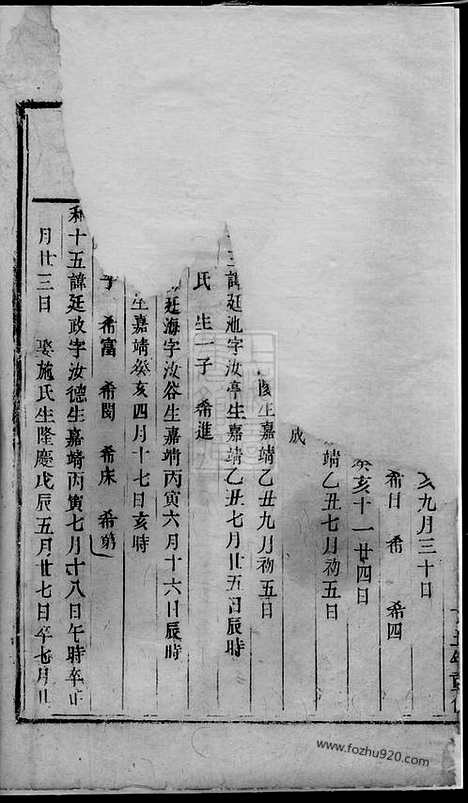 亥九月三十日
希日 希 希四
癸亥十一廿四日
靖乙丑七月初五日
成
生嘉靖乙丑九月初五日
三諱廷池字汝亭生嘉靖乙丑七月廿五日辰時
氏 生一子 希進
廷海字汝谷生嘉靖丙寅六月十六日辰時
生嘉靖癸亥四月十七日亥時
子 希富 希閔 希床 希第
和十五諱廷政字汝德生嘉靖丙寅七月十八日午時卒正
月廿三日 娶施氏生隆慶戊辰五月廿七日卒七月廿
www.fozhu920.com